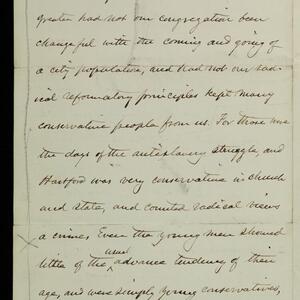 greater had not our congregation been
changeful with the coming and going of
a city population, and had not our rad-
ical reformatory principles kept many
conservative people from us. For those were
the days of the antislavery struggle, and
Hartford was very conservative in church
and state, and counted radical views
a crime. Even the young men showed
little of the usual advance tendency of their
age, and were simply young conservatives,